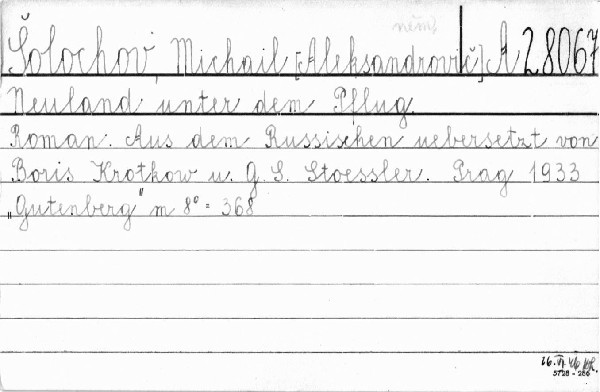 něm.
Šolochov, Michail [Aleksandrovič] A 28067
Neuland unter dem Pflug.
Roman. Aus dem Russischen uebersetzt von
Boris Krotkow u. G. S. Stoessler. Prag 1933
„Gutenberg" m 8° = 368
26. VI.
5728 - 286